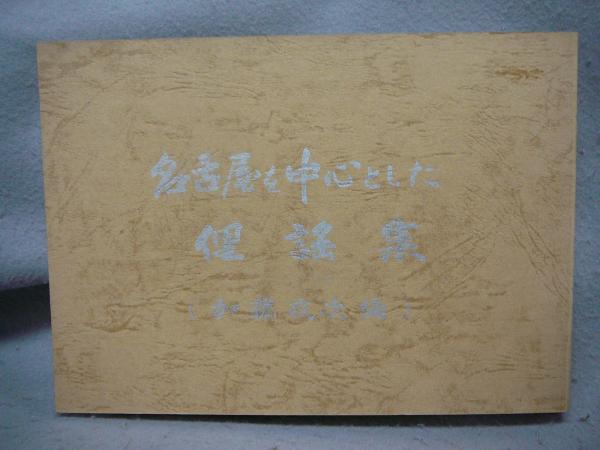 名古屋を中心とした
俚謡集
(加藤政次編)